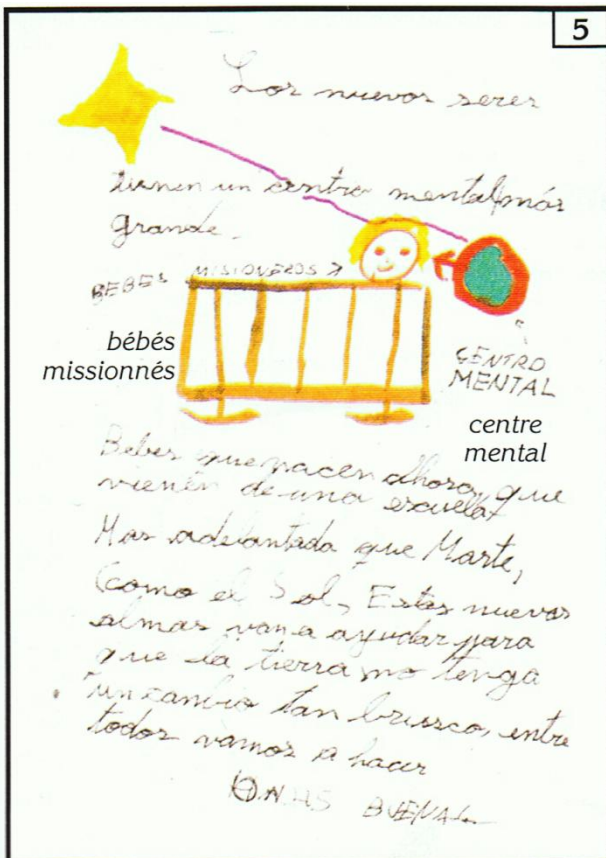 5
Los nuevos seres
tienen un centro mental más
grande.
BEBES MISIONEROS
bébés
missionnés
CENTRO
MENTAL
centre
mental
Bebes que nacen ahora, que
vienen de una escuela
Mas adelantada que Marte,
(como el Sol, Estas nuevas
almas van a ayudar para
que la tierra no tenga
un cambio tan brusco, entre
todos vamos a hacer
BUENAS